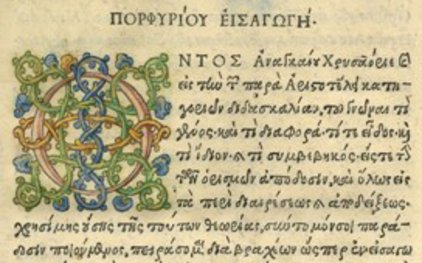 ΠΟΡΦΥΡΙΟΥ ΕΙΣΑΓΩΓΗ.
ΟΝΤΟΣ ἀναγκαίου Χρυσαόριε
εἰς τὴν παρὰ Ἀριστοτέλει κατη
γοριῶν διδασκαλίαν, τοῦ γνῶναι τί
γένος· καὶ τί διαφορά· τί τε εἶδος· καὶ
τί ἴδιον· καὶ τί συμβεβηκός· εἴς τε τὴν
τῶν ὁρισμῶν ἀπόδοσιν, καὶ ὅλως εἰς
τὰ περὶ διαιρέσεως καὶ ἀποδείξεως
χρησίμης οὔσης τῆς τούτων θεωρίας, σύντομόν σοι παρά
δοσιν ποιούμενος, πειράσομαι διὰ βραχέων ὥσπερ ἐν εἰσαγω